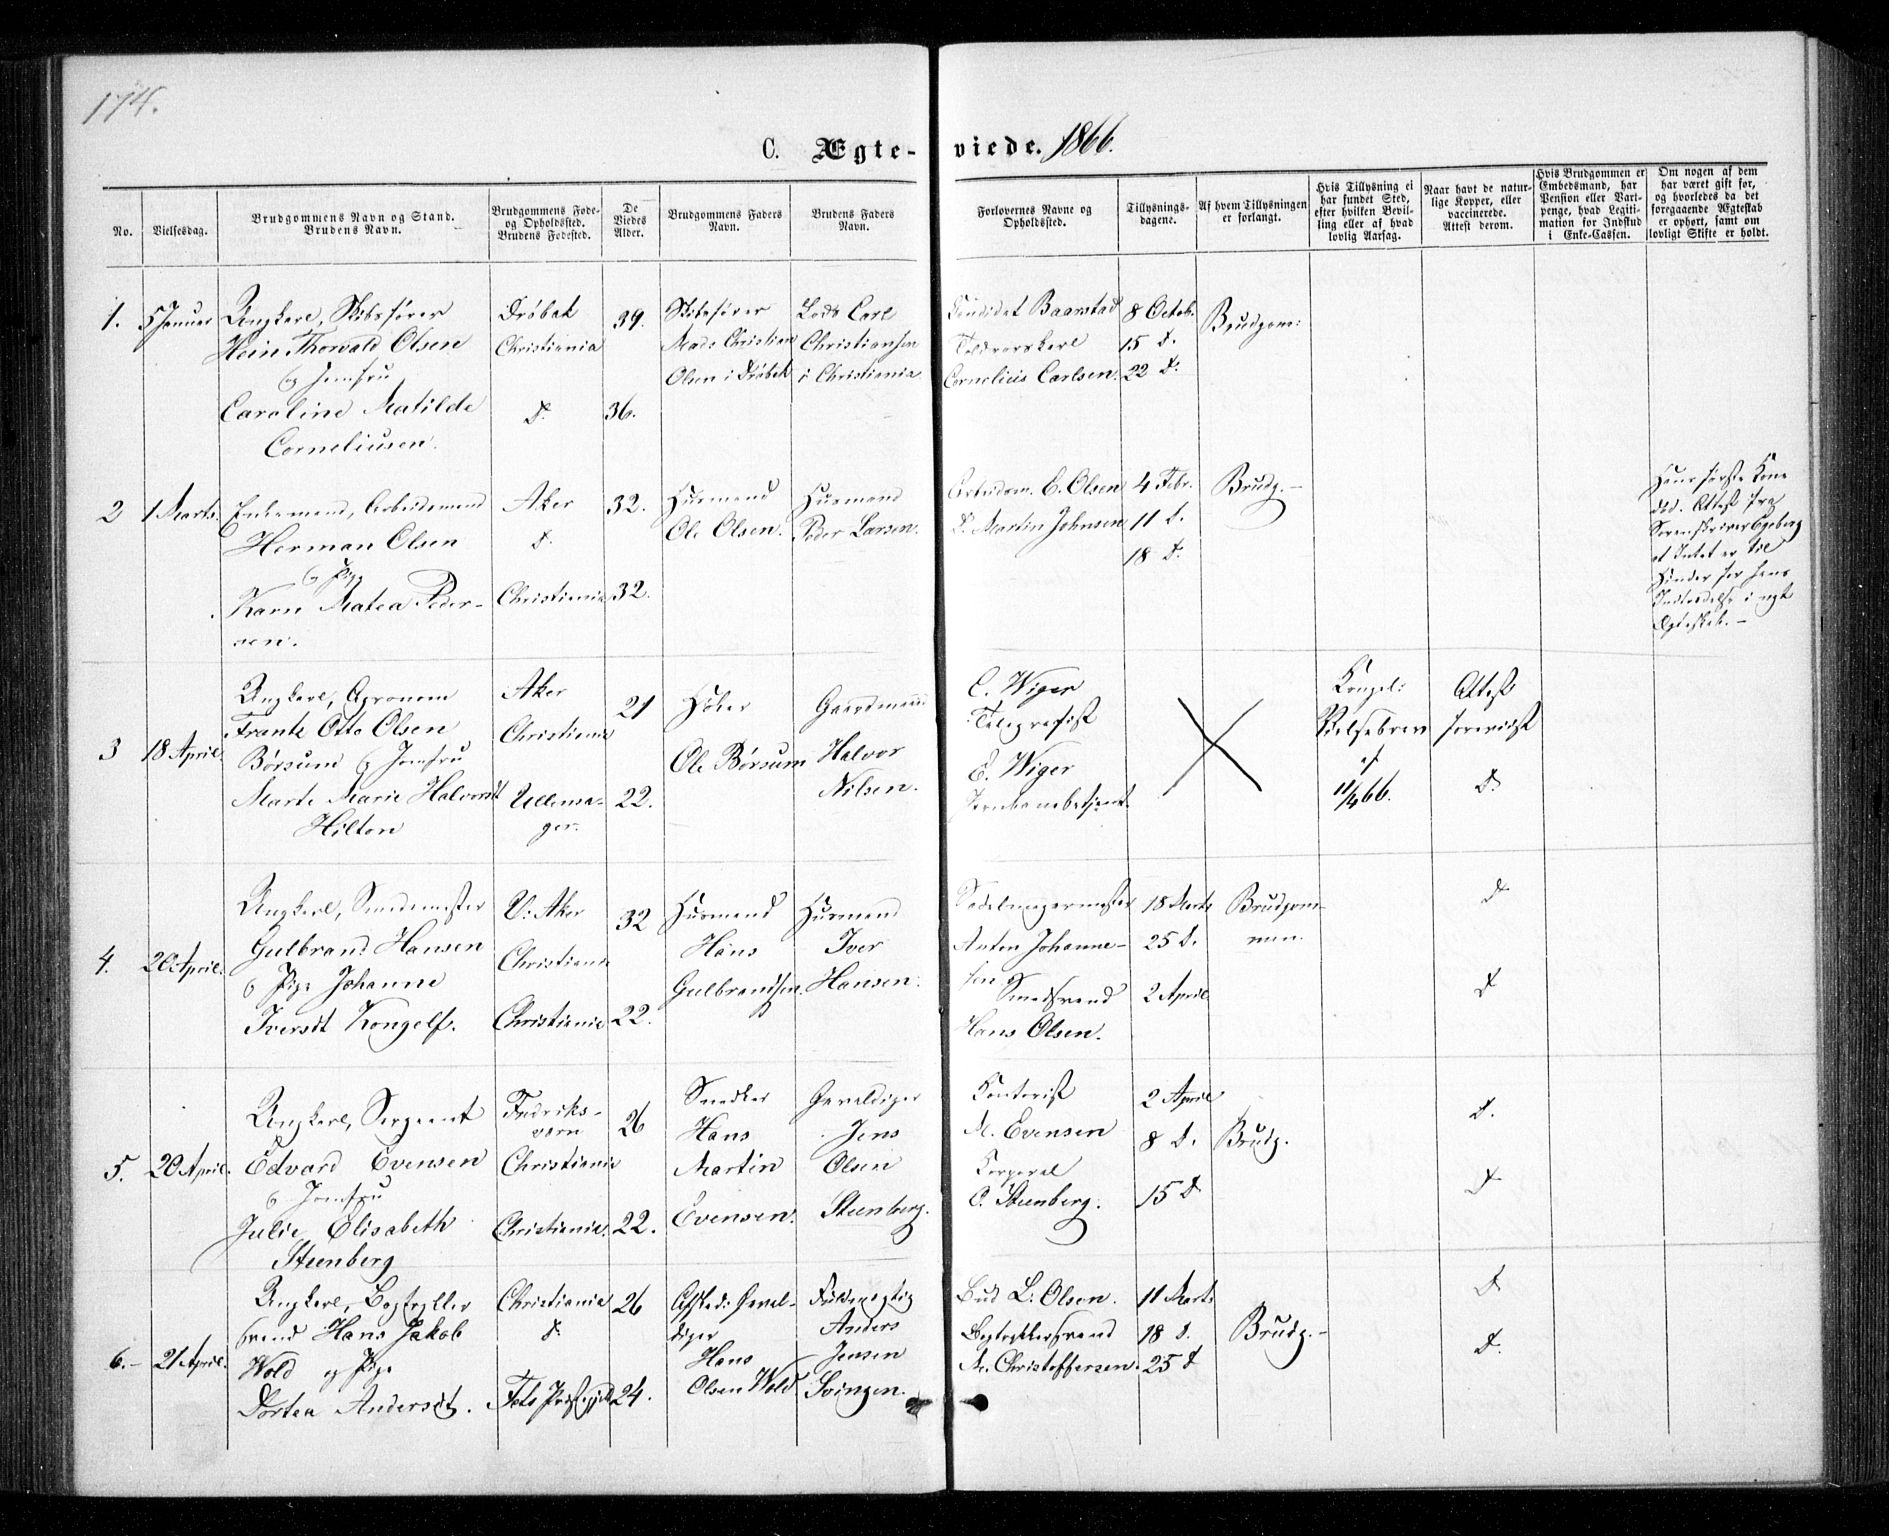 174.
C. Ægte-viede. 1866.
No.
Vielsesdag.
Brudgommens Navn og Stand.
Brudens Navn.
Brudgommens Føde-
og Opholdssted.
Brudens Fødested.
De
Viedes
Alder.
Brudgommens Faders
Navn.
Brudens Faders
Navn.
Forlovernes Navne og
Opholdssted.
Tillysnings-
dagene.
Af hvem Tillysningen
er forlangt.
Hvis Tillysning ei
har fundet Sted,
efter hvilken Bevil-
ling eller af hvad
lovlig Aarsag.
Naar havt de natur-
lige Kopper, eller
vaccinerede.
Attest derom.
Hvis Brudgommen er
Embedsmand, har
Pension eller Vart-
penge, hvad Legiti-
mation for Indskud
i Enke-Cassen.
Om nogen af dem
har været gift før,
og hvorledes da det
foregaaende Ægteskab
er ophørt, samt om
lovligt Skifte er holdt.
1.
5 Januar
Ungkarl, Skibsfører
Hein Thorvald Olsen
og Jomfru
Caroline Matilde
Corneliusen.
Drøbak
Christiania
D.
39.
36.
Skibsfører
Mads Christian
Olsen i Drøbak
Lods Carl
Christiansen
i Christiania
Baarstad
Cornelius Carlsen.
8 Octob.
15 D.
22 D.
Brudgom:
2
1 Marts.
Enkemand, Arbeidsmand
Herman Olsen
og Pige
Karn Matea Peder-
sen.
Aker
D.
Christiania
32.
32.
Husmand
Ole Olsen.
Husmand
Peder Larsen.
Arbeidsm. C. Olsen
D. Martin Johnsen
4 Febr.
11 D.
18 D.
Brudg.-
Hans første Kone
død. Attest fra
Sorenskriver Egeberg
at Intet er til
Hinder for hans
Indtrædelse i nyt
Ægteskab.-
3
18 April.
Ungkarl, Agronom
Frants Otto Olsen
Børsum og Jomfru
Marte Marie Halvorsdt
Hilton
Aker
Christiania
Ullensa-
ger.
21
22.
Høker
Ole Børsum
Gaardmand
Halvor
Nilsen.
C. Wiger
Telegrafist
E. Wiger
Jernbanebetjent.
Kongel:
Vielsebrev
af
11/4 66.
Attest
forevist
D.
4.
20 April.
Ungkarl, Smedemester
Gulbrand Hansen
og Pige Johanne
Iversdt Kongelf.
V: Aker
Christiania
Christiania
32
22.
Husmand
Hans
Gulbrandsen.
Husmand
Iver
Hansen.
Sadelmagermester
Anton Johanne-
sen
Smedsvend
Hans Olsen.
18 Marts
25 D.
2 April.
Brudgom-
men.
D
D
5.
20 April.
Ungkarl, Sergeant
Edvard Evensen
og Jomfru
Julie Elisabeth
Steenberg
Fredriks-
værn
Christiania
Christiania.
26
22.
Snedker
Hans
Martin
Evensen.
Gevaldiger
Jens
Olsen
Steenberg.
Kontorist
M. Evensen
Korporal
O. Steenberg.
2 April
8 D.
15 D
Brudg.
D.
D
6.-
21 April.
Ungkarl, Bogtrykker
svend Hans Jakob
Wold og Pige
Dortea Andersdt.
Christiania
D.
Fets Præstegjeld
26
24.
Afsked: Geval-
diger
Hans
Olsen Wold
Fuldmægtig
Anders
Jensen
Svingen.
Bud L. Olsen.
Bogtrykkersvend
M. Christoffersen.
11 Marts
18 D.
25 D
Brudg.-
D
D.